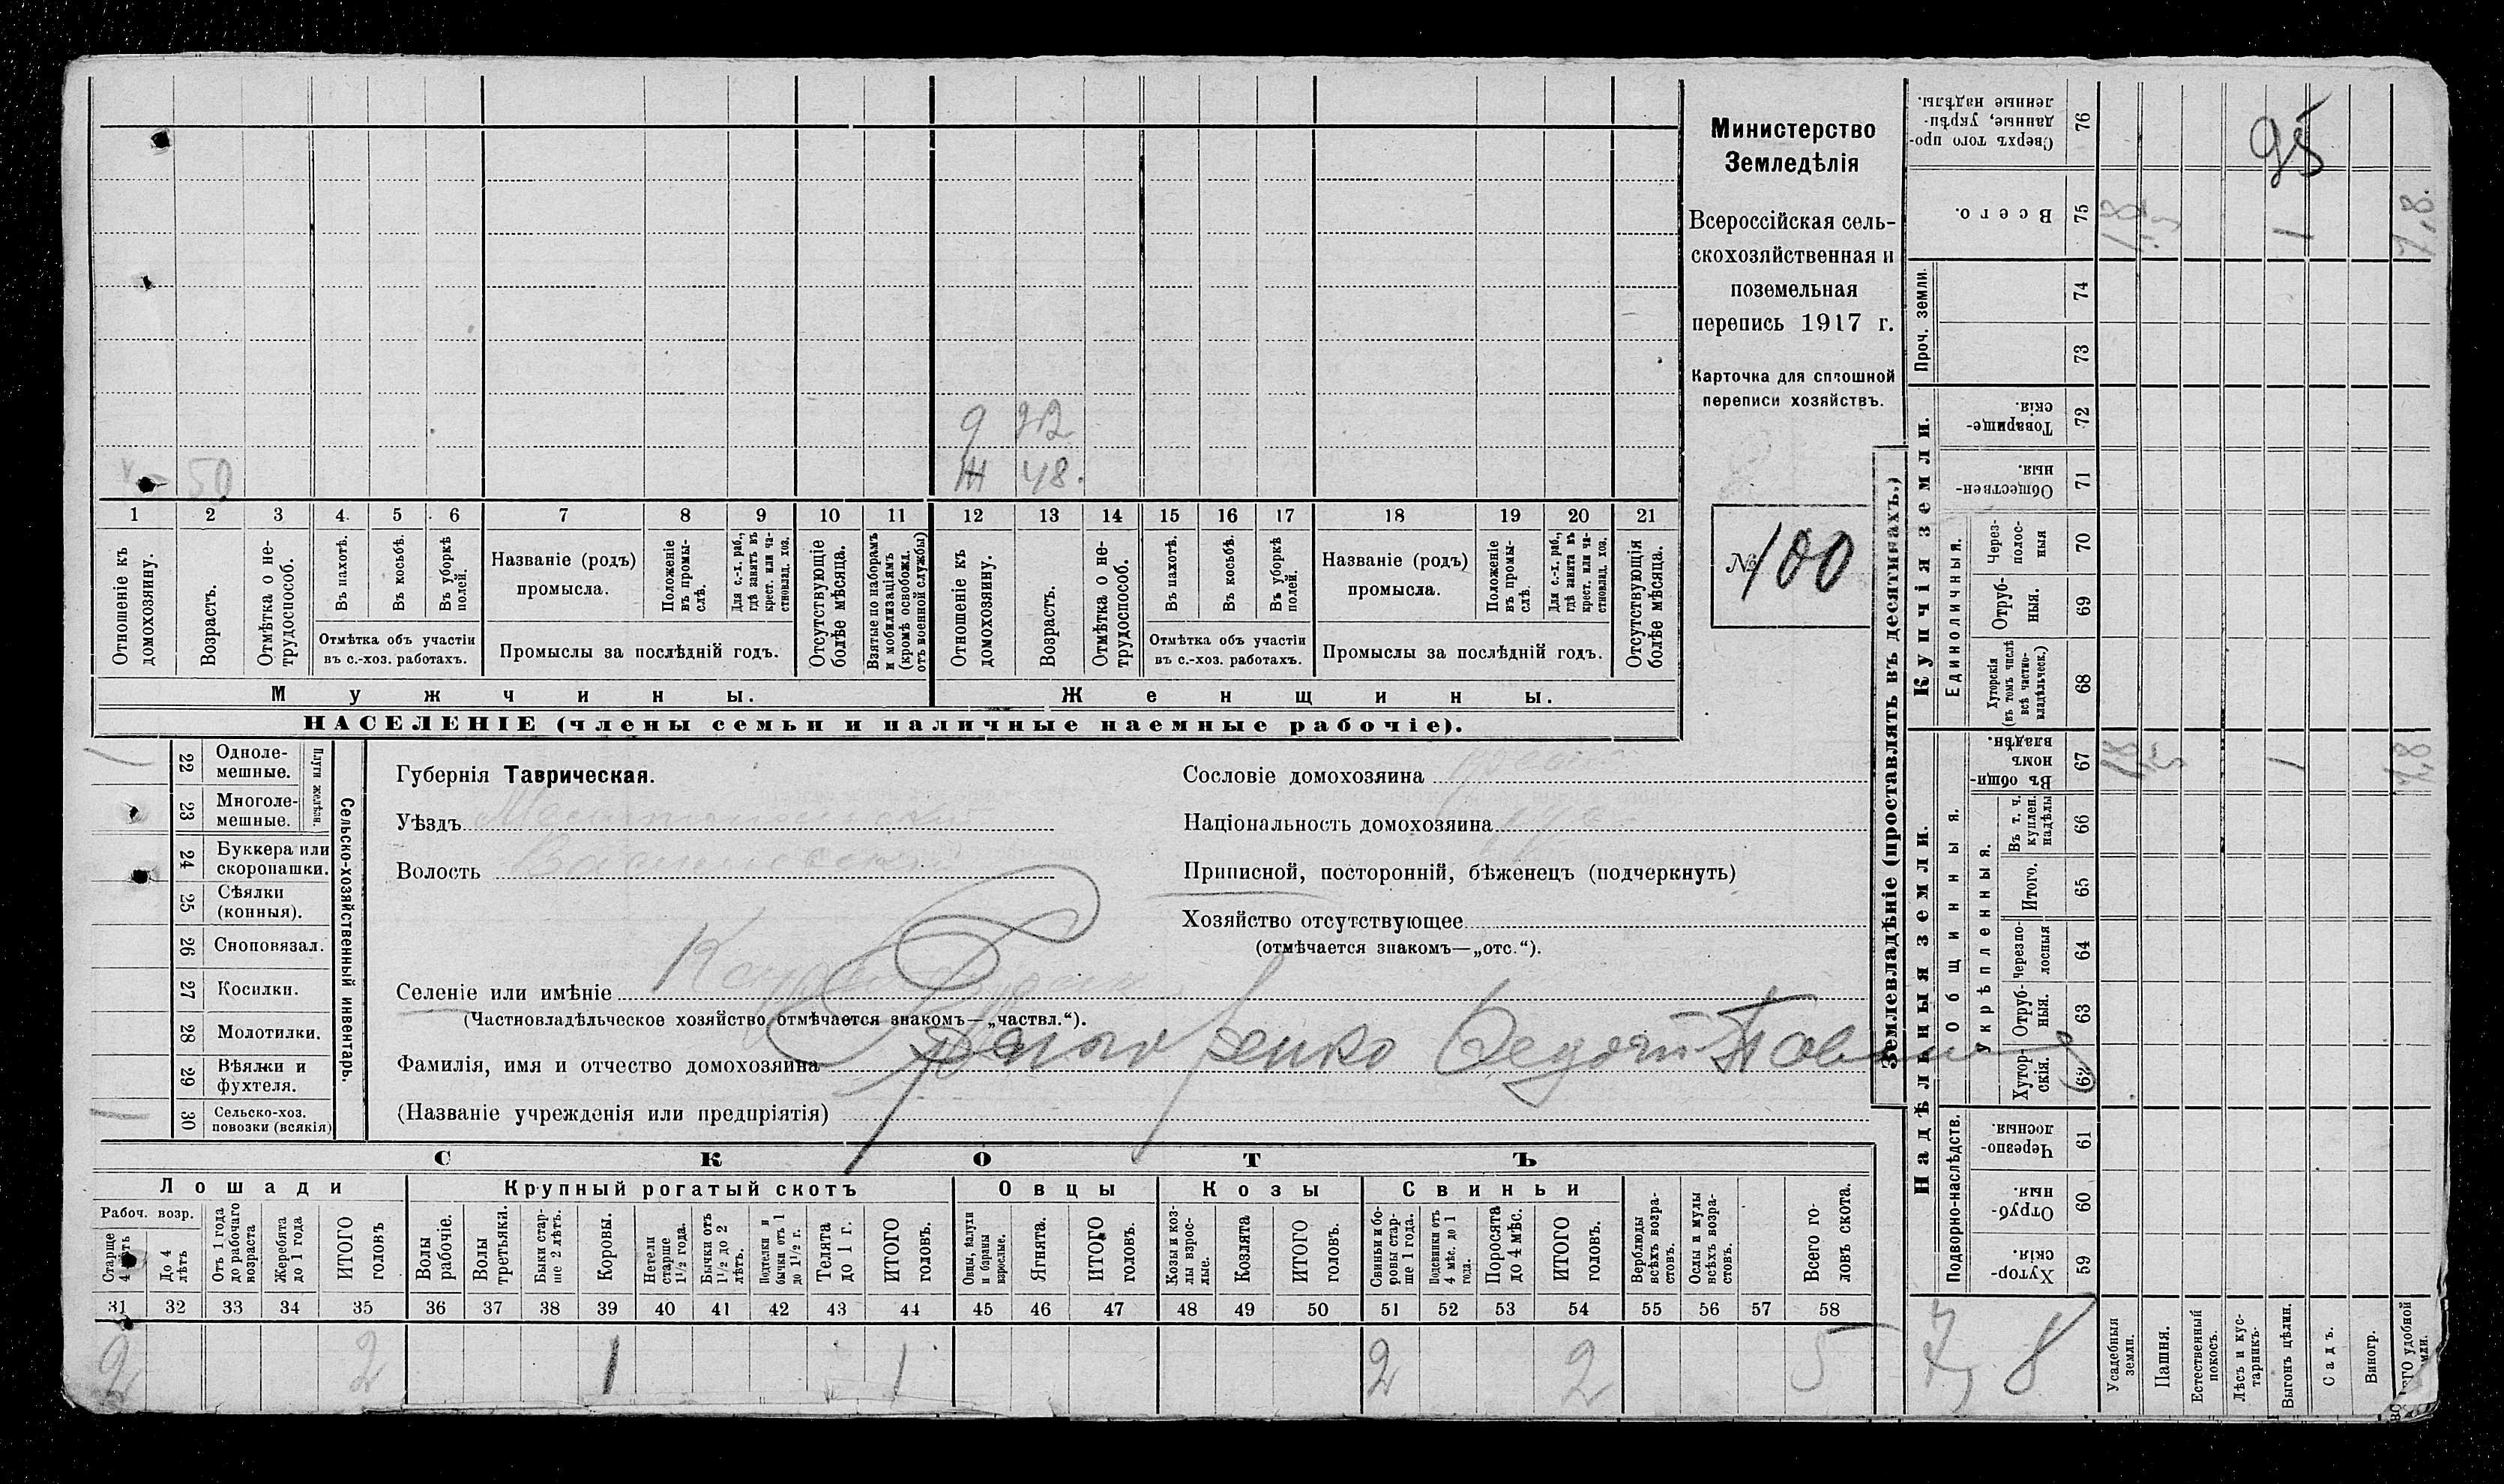 Министерство
Земледѣлія
Всероссійская сель-
скохозяйственная и
поземельная
перепись 1917 г.
Карточка для сплошной
переписи хозяйствъ.
№ 100
д 22
х 50 Ж 48.
1 2 3 4 5 6 7 8 9 10 11 12 13 14 15 16 17 18 19 20 21
Отношеніе къ домохозяину.
Возрастъ.
Отмѣтка о не-трудоспособ.
Въ пахотѣ.
Въ косьбѣ.
Въ уборкѣ полей.
Отмѣтка объ участіи
въ с.-хоз. работахъ.
Названіе (родъ)
промысла.
Положеніе въ промы-слѣ.
Для с.-х. раб., гдѣ занятъ въ крест. или ча-стновлад. хоз.
Промыслы за послѣдній годъ.
Отсутствующіе болѣе мѣсяца.
Взятые по наборамъ и мобилизаціямъ (кромѣ освобожд. отъ военной службы)
Отношеніе къ домохозяину.
Возрастъ.
Отмѣтка о не-трудоспособ.
Въ пахотѣ.
Въ косьбѣ.
Въ уборкѣ полей.
Отмѣтка объ участіи
въ с.-хоз. работахъ.
Названіе (родъ)
промысла.
Положеніе въ промы-слѣ.
Для с.-х. раб., гдѣ занята въ крест. или ча-стновлад. хоз.
Промыслы за послѣдній годъ.
Отсутствующія болѣе мѣсяца.
Мужчины.
Женщины.
НАСЕЛЕНІЕ (члены семьи и наличные наемные рабочіе).
22 Одноле-мешные. 1
23 Многоле-мешные.
Плуги желѣзн.
24 Буккера или скоропашки.
25 Сѣялки (конныя).
26 Сноповязал.
27 Косилки.
28 Молотилки.
29 Вѣялки и фухтеля.
30 Сельско-хоз. повозки (всякія) 1
Сельско-хозяйственный инвентарь.
Губернія Таврическая.
Уѣздъ Мелитопольскій
Волость
Сословіе домохозяина
Національность домохозяина
Приписной, посторонній, бѣженецъ (подчеркнуть)
Хозяйство отсутствующее
(отмѣчается знакомъ—„отс.“).
Селеніе или имѣніе
(Частновладѣльческое хозяйство отмѣчается знакомъ—„частвл.“).
Фамилія, имя и отчество домохозяина
(Названіе учрежденія или предпріятія)
СКОТЪ
Лошади
Крупный рогатый скотъ
Овцы
Козы
Свиньи
Рабоч. возр.
Старше 4 лѣтъ
До 4 лѣтъ
Отъ 1 года до рабочаго возраста
Жеребята до 1 года
ИТОГО головъ
Волы рабочіе.
Волы третьяки.
Быки стар-ше 2 лѣтъ.
Коровы.
Нетели старше 1½ года.
Бычки отъ 1½ до 2 лѣтъ.
Подтелки и бычки отъ 1 до 1½ г.
Телята до 1 г.
ИТОГО головъ.
Овцы, валухи и бараны взрослые.
Ягнята.
ИТОГО головъ.
Козы и коз-лы взрос-лые.
Козлята
ИТОГО головъ.
Свиньи и бо-ровы стар-ше 1 года.
Подсвинки отъ 4 мѣс. до 1 года.
Поросята до 4 мѣс.
ИТОГО головъ.
Верблюды всѣхъ возра-стовъ.
Ослы и мулы всѣхъ возра-стовъ.
Всего го-ловъ скота.
31 32 33 34 35 36 37 38 39 40 41 42 43 44 45 46 47 48 49 50 51 52 53 54 55 56 57 58
2 2 1 1 2 2 5
Землевладѣніе (проставлять въ десятинахъ.)
Надѣльныя земли.
Купчія земли.
Проч. земли.
Сверхъ того про-данные, укрѣп-ленные надѣлы. 76 95
Всего. 75 1 7,8.
74
73
Товарище-скія. 72
Обществен-ныя. 71
Единоличныя.
Через-полос-ныя 70
Отруб-ныя. 69
Хуторскія (въ томъ числѣ всѣ частно-владѣльческ.) 68
Общинныя.
Въ общин-номъ владѣн. 67 1 7,8
Укрѣпленныя.
Въ т. ч. куплен. надѣлы 66
Итого. 65
Черезпо-лосныя 64
Отруб-ныя. 63
Хутор-скія. 62
Подворно-наслѣдств.
Черезпо-лосныя. 61
Отруб-ныя. 60
Хутор-скія. 59
7,8
Усадебныя земли.
Пашня.
Естественный покосъ.
Лѣсъ и кус-тарникъ.
Выгонъ цѣлин.
Садъ.
Виногр.
удобной